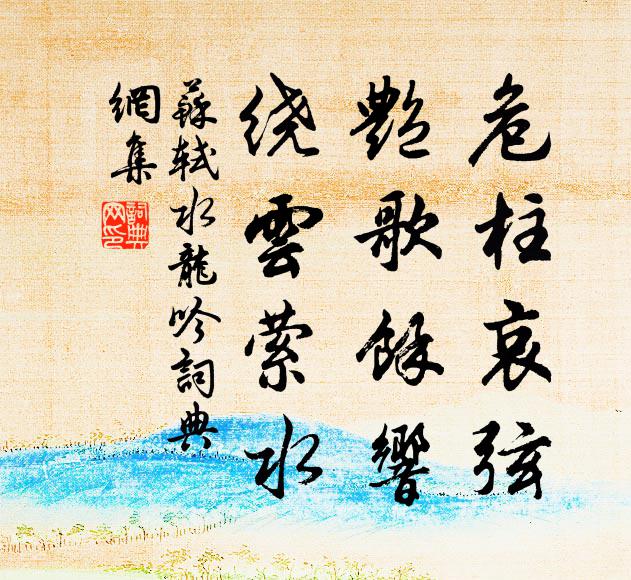 危柱哀弦
艷歌餘響
绕雲萦水
蘇軾水龍吟詞典
網集
詞典网印